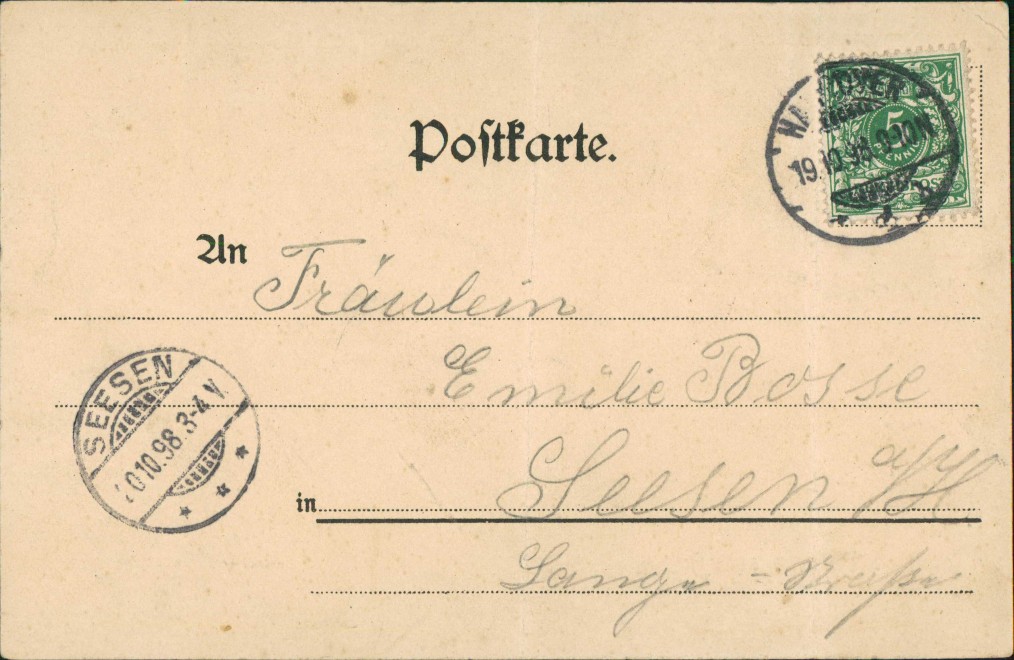 Postkarte.
HANNOVER
19.10.98. 9-10N
5
PFENNIG
An Fräulein
Emilie Bosse
SEESEN
20.10.98.3-4N
in Seesen a/H
Lange-Straße